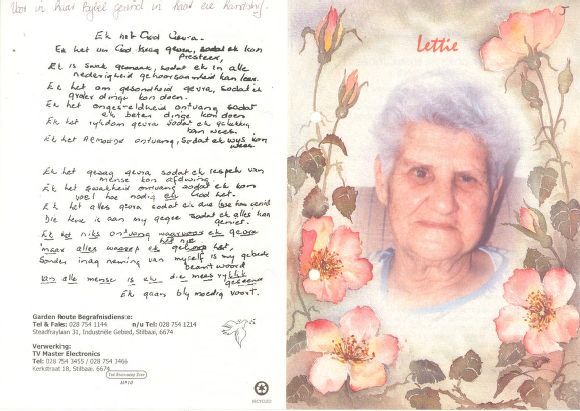 Voor in haar Bybel gevind in haar eie handskrif.
Ek het God Gevra.
Ek het vir God Krag gevra, sodat ek kan
Presteer,
Ek is swak gemaak, sodat ek in alle
nederigheid gehoorsaamheid kan leer.
Ek het om gesondheid gevra, sodat ek
groter dinge kan doen.
Ek het ongesteldheid ontvang sodat
ek beter dinge kan doen
Ek het rykdom gevra sodat ek gelukkig
kan wees.
Ek het Armoede ontvang, sodat ek wys kan
wees.
Ek het gesag gevra sodat ek respek van
mense kan afdwing.
Ek het swakheid ontvang sodat ek kan
voel hoe nodig ek God het.
Ek het alles gevra sodat ek die lewe kan geniet
Die lewe is aan my gegee sodat ek alles kan
geniet.
Ek het niks ontvang waarvoor ek gevra
het nie
maar alles waarop ek gehoop het,
Sonder inag neming van myself is my gebede
beantwoord
Van alle mense is ek die mees ryklik
geseënde
Ek gaan bly moedig voort.
Garden Route Begrafnisdienste:
Tel & Faks: 028 754 1144 n/u Tel: 028 754 1214
Steadfraylaan 31, Industriële Gebied, Stilbaai, 6674.
Verwerking:
TV Master Electronics
Tel: 028 754 3455 / 028 754 3466
Kerkstraat 18, Stilbaai, 6674
RECYCLED
Lettie